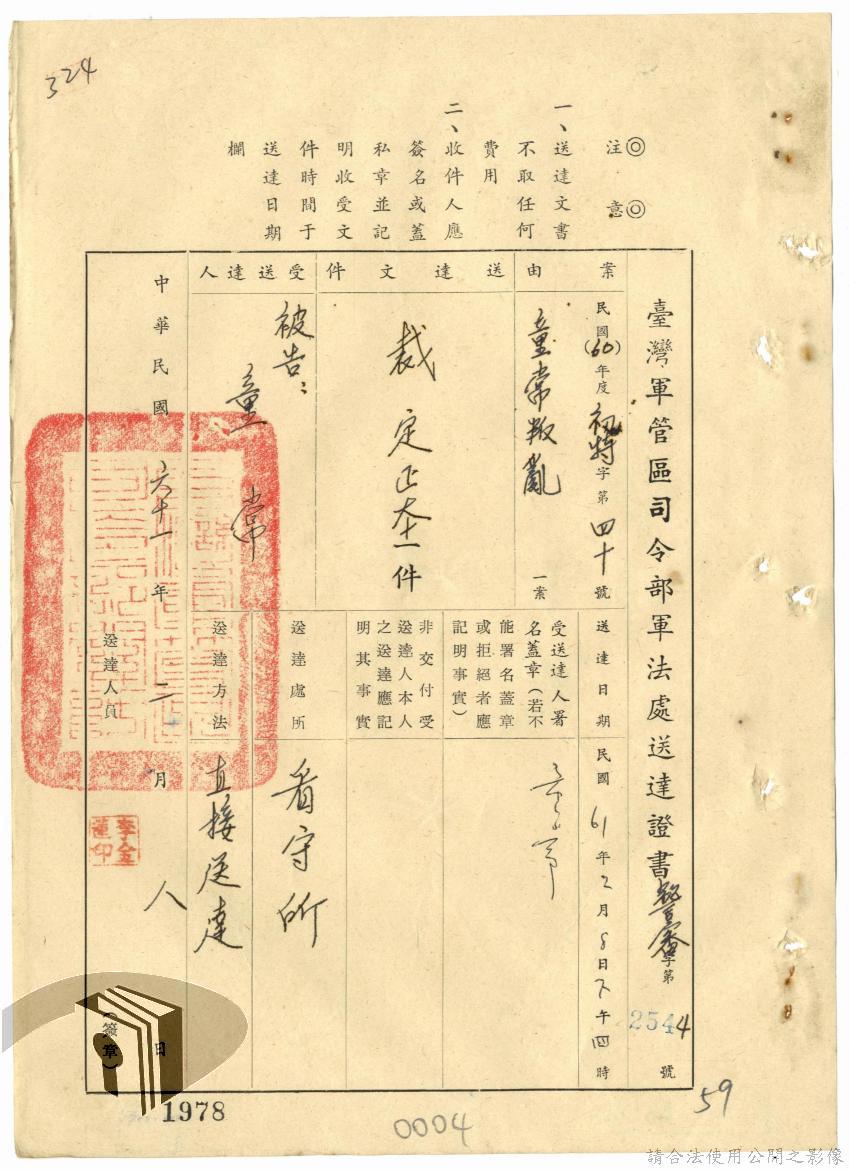 324
◎注意◎
一、送達文書
不取任何
費用
二、收件人應
簽名或蓋
私章並記
明收受文
件時間于
送達日期
欄
臺灣軍管區司令部軍法處送達證書
字第2544號
案由
民國(60)年度初特字第四十號
童常叛亂一案
送達文件
裁定正本一件
受送達人
被告：童常
送達日期
民國61年2月8日下午四時
受送達人署
名蓋章（若不
能署名蓋章
或拒絕者應
記明事實）
童常
非交付受
送達人本人
之送達應記
明其事實
送達處所
看守所
送達方法
直接送達
中華民國六十一年二月八日
送達人員
（簽章）
1978
0004
59
請合法使用公開之影像